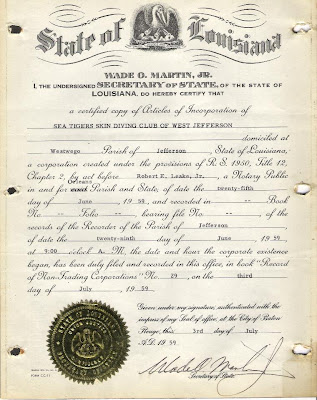 State of Louisiana
WADE O. MARTIN, JR.
I, THE UNDERSIGNED SECRETARY OF STATE, OF THE STATE OF
LOUISIANA, DO HEREBY CERTIFY THAT
a certified copy of Articles of Incorporation of
SEA TIGERS SKIN DIVING CLUB OF WEST JEFFERSON
domiciled at
Westwego Parish of Jefferson, State of Louisiana,
a corporation created under the provisions of R. S. 1950, Title 12,
Chapter 2, by act before Robert E. Leake, Jr., a Notary Public
Orleans
in and for said Parish and State, of date the twenty-fifth
day of June 19 59, and recorded in -- Book
No. -- Folio -- bearing file No. --, of the
records of the Recorder of the Parish of Jefferson
of date the twenty-ninth day of June 19 59,
at 9:00 o'clock A. M. the date and hour the corporate existence
began, has been duly filed and recorded in this office, in book "Record
of Non-Trading Corporations" No. 29, on the third
day of July 19 59
Given under my signature, authenticated with the
impress of my Seal of office, at the City of Baton
Rouge, this 3rd day of July
A.D. 19 59.
Wade O. Martin, Jr.
Secretary of State